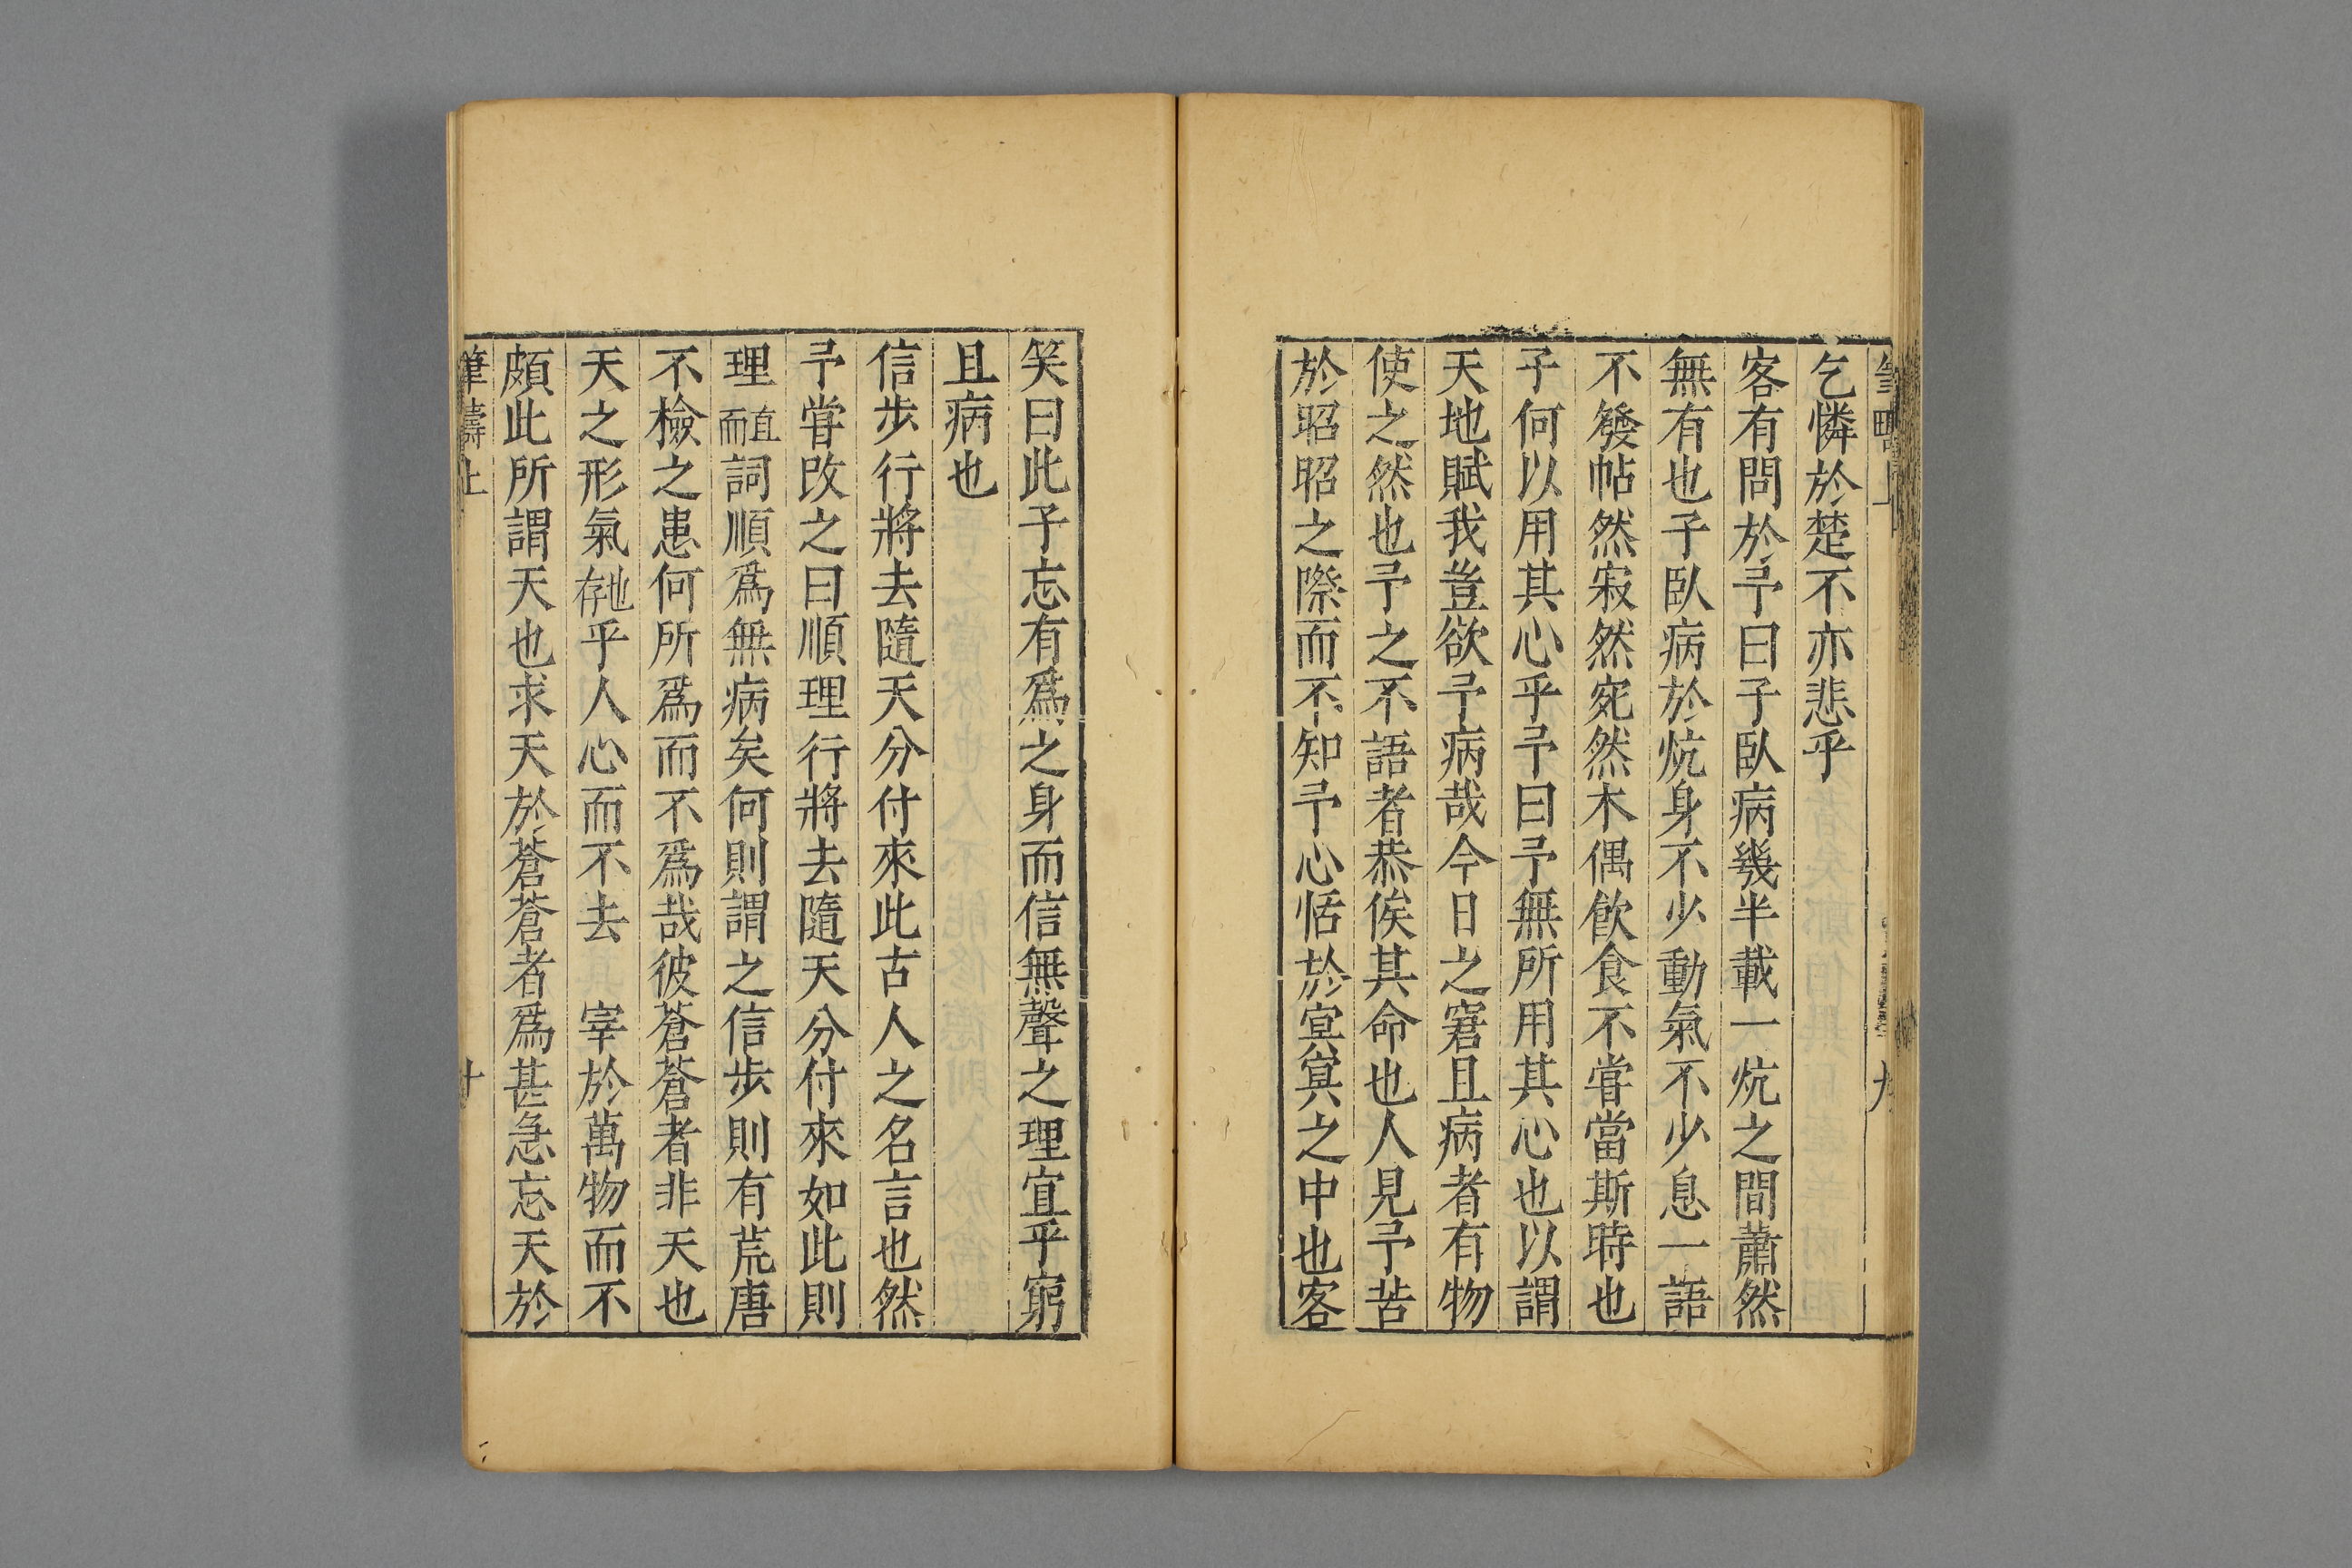 乞憐於楚不亦悲乎
客有問於予曰子臥病幾半載一炕之間蕭然
無有也子臥病於炕身不少動氣不少息一語
不發帖然寂然宛然木偶飲食不甞當斯時也
子何以用其心乎予曰予無所用其心也以謂
天地賦我豈欲予病哉今日之窘且病者有物
使之然也予之不語者恭俟其命也人見予苦
於昭昭之際而不知予心恬於冥冥之中也客
笑曰此子忘有爲之身而信無聲之理宜乎窮
且病也
信步行將去隨天分付來此古人之名言也然
予甞改之曰順理行將去隨天分付來如此則
理直而詞順爲無病矣何則謂之信步則有荒唐
不檢之患何所爲而不爲哉彼蒼蒼者非天也
天之形氣也存乎人心而不去　宰於萬物而不
頗此所謂天也求天於蒼蒼者爲甚急忘天於
筆疇上
十